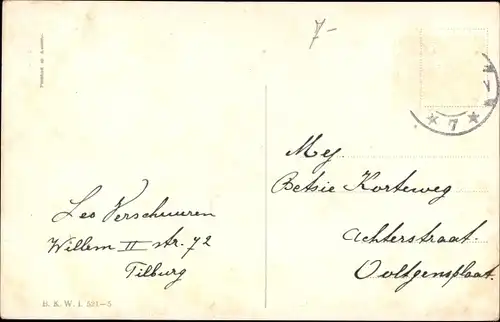 7-
7
Leo Verschuuren
Willem II str. 72
Tilburg
Mej
Betsie Korteweg
Achterstraat.
Ooltgensplaat.
B. K. W. I. 531-5